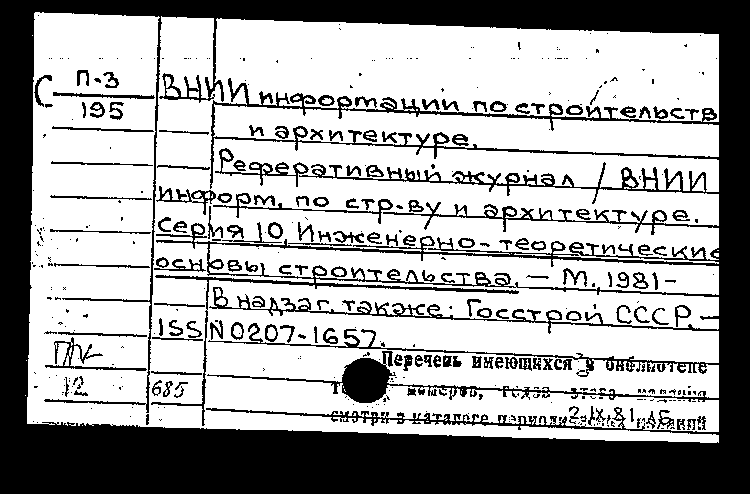 С П-3 ВНИИ информации по строительств
195 и архитектуре.
Реферативный журнал / ВНИИ
информ. по стр-ву и архитектуре.
Серия 10, Инженерно-теоретические
основы строительства. — М., 1981–
В надзаг. также: Госстрой СССР. —
ISSN 0207-1657.
Перечень имеющихся в библиотеке
12 685 номеров, годов этого издания
2.IX.81
смотри в каталоге периодических изданий